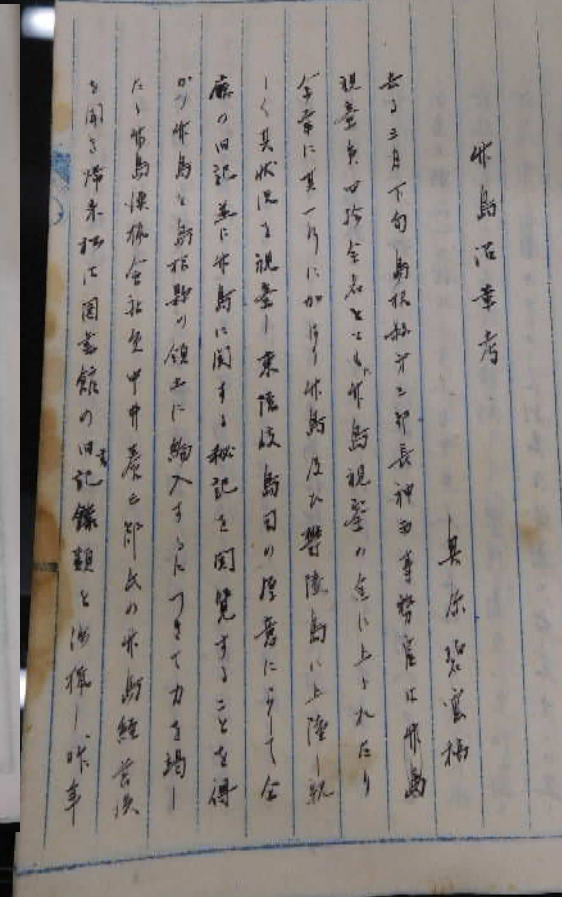 竹島沿革考
奥原碧雲稿
去る三月下旬島根縣第三部長神西事務官は竹島
視察員四拾余名とともに竹島視察の途に上られたり
余幸に其一行に加はり竹島及び欝陵島に上陸し親
しく其状況を視察し東隠岐島司の厚意によりて全
廳の旧記並に竹島に関する秘記を閲覧することを得
かつ竹島を島根縣の領土に編入するにつきて力を竭し
たる竹島漁猟会社員中井養三郎氏の竹島経営談
を聞き帰来松江図書館の旧書記録類を渉猟し昨年